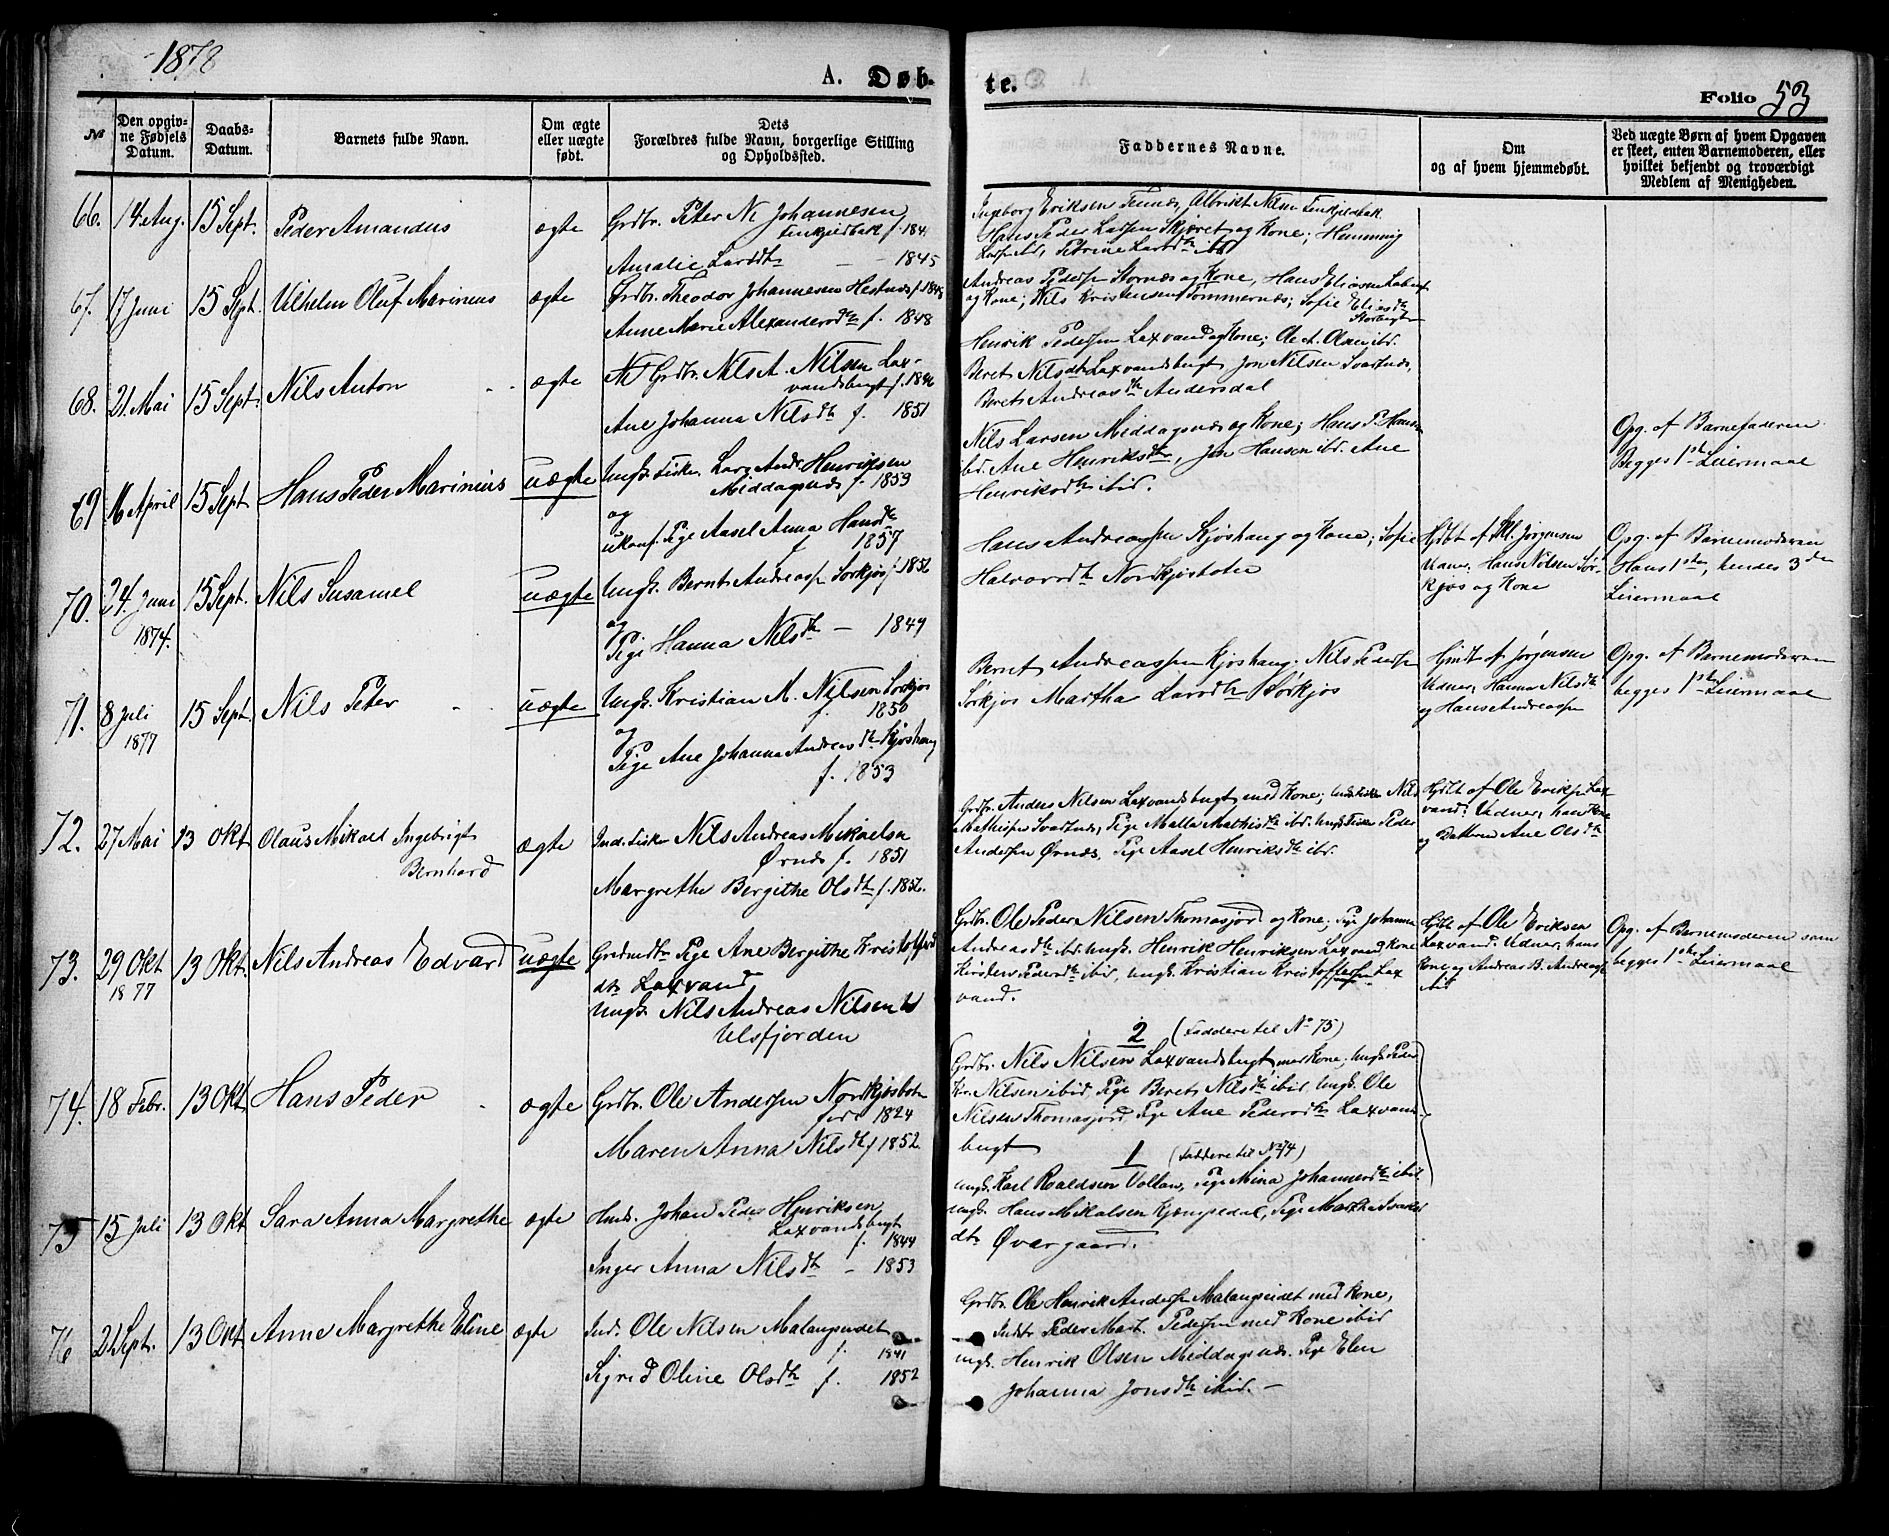 1878
A. Døb-
te.
Folio 53
№
Den opgiv-
ne Fødsels
Datum.
Daabs-
Datum.
Barnets fulde Navn.
Om ægte
eller uægte
født.
Dets
Forældres fulde Navn, borgerlige Stilling
og Opholdsted.
Faddernes Navne.
Om
og af hvem hjemmedøbt.
Ved uægte Børn af hvem Opgaven
er skeet, enten Barnemoderen, eller
hvilket bekjendt og troværdigt
Medlem af Menigheden.
66. 14 Aug. 15 Sept. Peder Amandus ægte
Grdbr. Peter N. Johannesen
f. 184
Amalie Larsdtr — 1845
Ingeborg Eriksen
Hans Peder Larsen Skjæret og Kone; Hemming
Petrine Larsdtr ibd
67. 17 Juni 15 Sept. Vilhelm Oluf Marinius ægte
Grdbr. Theodor Johannesen Hestnæs f. 1848
Anne Marie Alexandersdtr f. 1848
Andreas Pedersen Stornæs og Kone, Hans Eliasen
og Kone; Nils Kristensen Tømmernæs; Sofie Eliasdtr
68. 21. Mai 15 Sept. Nils Anton ægte
Grdbr. Nils A. Nilsen Lax-
vandsbugt f. 1846
Ane Johanna Nilsdtr f. 1851
Henrik Pedersen Laxvand og Kone; Ole A. Olsen ibd.
Beret Nilsdtr Laxvandsbugt Jon Nilsen Svartnæs,
Beret Andreasdtr Andersdal
69 16 April 15 Sept Hans Peder Marinius uægte
Ungk. Fisker Lars Andr. Henriksen
Middagsnæs f. 1853
og
ukonf. Pige Aasel Anna Hansdtr
f. 1857
Nils Larsen Middagsnæs og Kone; Hans P. Hansen
ibd. Ane Henriksdtr, Jon Hansen ibd. Ane
Henriksdtr ibid.
Opg. af Barnefaderen
Begges 1ste Leiermaal
70. 24. Juni 1874. 15 Sept. Nils Susamel uægte
Ungk. Bernt Andreasen Sørkjos f. 1852
og
Pige Hanna Nilsdtr — 1849
Hans Andreassen Kjøshaug og Kone; Sofie
Halvorsdtr Nordkjosbotn
Hjdbt af Skl. Jørgensen
Udner, Hans Nilsen Sør-
kjos og Kone
Opg. af Barnemoderen
Hans 1ste, hendes 3die
Leiermaal
71. 8 Juli 1877 15 Sept. Nils Peter uægte
Ungk. Kristian A. Nilsen Sørkjos
f. 1850
og
Pige Ane Johanna Andreasdtr Kjøshaug
f. 1853
Bernt Andreassen Kjøshaug. Nils Pedersen
Sørkjos Martha Larsdtr Sørkjos
Hjmdt af Jørgensen
Udner, Hanna Nilsdtr
og Hans Andreassen
Opg. af Barnemoderen
begges 1ste Leiermaal
72. 27 Mai 13 Okt Olaus Mikael Ingebrigt
Bernhard
ægte
Ind. Fisker Nils Andreas Mikaelsen
Ørnæs f. 1851
Margrethe Bergithe Olsdtr f. 1856.
Grdbr. Anders Nilsen Laxvandsbugt med Kone; Nils
Mathisen Svartnæs, Pige Malla Mathisdtr ibd. Ungk. Fisker Peder
Andersen Ørnæs, Pige Aasel Henriksdtr ibd.
Hjdbt af Ole Eriksen Lax-
vand, Udner, hans Kone
og Datteren Ane Olsdtr
73. 29 Okt 1877 13 Okt. Nils Andreas Edvard uægte
Grdmdtr Pige Ane Bergithe Kristoffers-
dtr Laxvand
Ungk. Nils Andreas Nilsen
Ulsfjorden
Grdbr. Ole Peder Nilsen Thomasjord og Kone; Pige Johanna
Andreasdtr ibd. Ungk. Henrik Henriksen Laxvand Kone
Kirsten Pedersdtr ibid, ungk. Kristian Kristoffersen Lax
vand.
Hjdbt af Ole Eriksen
Laxvand. Udner, hans
Kone og Andreas B. Andreasen
ibid
Opg. af Barnemoderen som
begges 1ste Leiermaal
74. 18 Febr. 13 Okt. Hans Peder ægte
Grdbr. Ole Andersen Nordkjosbotn
född 1824
Maren Anna Nilsdtr f. 1852.
2 (Faddere til No 75)
Grdbr. Nils Nilsen Laxvandsbugt med Kone, Ungk. Peder
Kr. Nilsen ibid, Pige Beret Nilsdtr ibid, Ungk. Ole
Nilsen Thomasjord, Pige Ane Pedersdtr Laxvands-
bugt
75 15 Juli 13 Okt Sara Anna Margrethe ægte
Hmd. Johan Peder Henriksen
Laxvandsbugt
f. 1844
Inger Anna Nilsdtr — 1853
1 (Faddere til No 74)
Ungk. Karl Roaldsen Vollan, Pige Mina Johannesdtr ibid.
Ungk. Hans Mikalsen Kjempedal, Pige Martha Isaks-
dtr Øvergaard.
76 21 Sept. 13 Okt Anne Margrethe Eline ægte
Ind. Ole Nilsen Malangseidet
f. 1841
Sigrid Oline Olsdtr f. 1852
Grdbr. Ole Henrik Andersen Malangseidet med Kone,
Indst Peder Mart. Pedersen med Kone ibid
Ungk. Henrik Olsen Middagsnæs. Pige Elen
Johanna Jonsdtr ibid. —